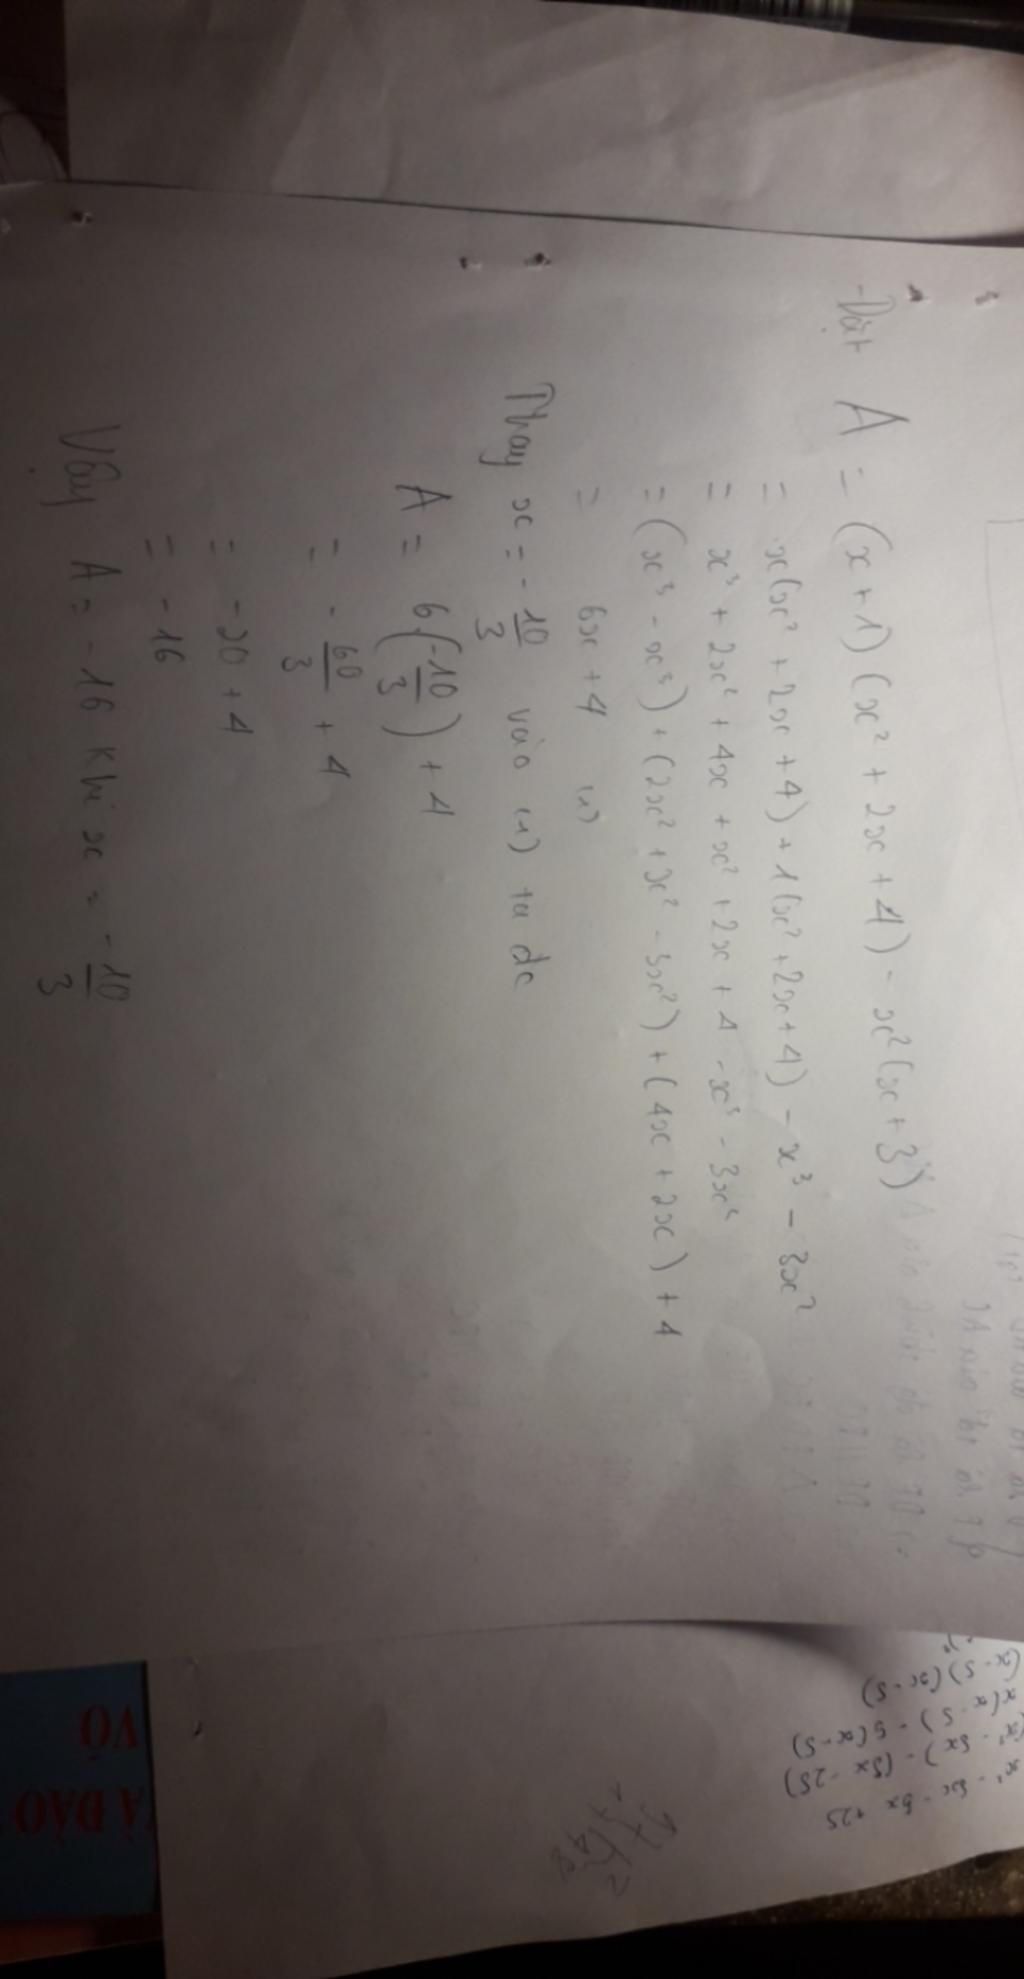 - Đặt A = (x+1)(x² + 2x + 4) - x²(x+3)
= x(x² + 2x + 4) + 1(x² + 2x + 4) - x³ - 3x²
= x³ + 2x² + 4x + x² + 2x + 4 - x³ - 3x²
= (x³ - x³) + (2x² + x² - 3x²) + (4x + 2x) + 4
= 6x + 4 (1)
Thay x = -10/3 vào (1) ta dc
A = 6.(-10/3) + 4
= -60/3 + 4
= -20 + 4
= -16
Vậy A = -16 khi x = -10/3
x² - 5x - 5x + 25
(x² - 5x) - (5x - 25)
x(x - 5) - 5(x - 5)
(x - 5)(x - 5)
VÕ
À ĐÀO